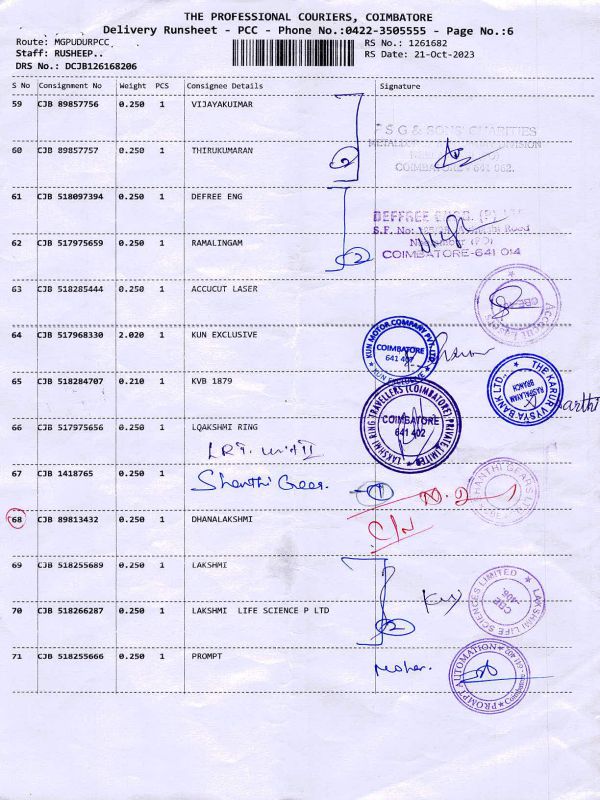 THE PROFESSIONAL COURIERS, COIMBATORE
Delivery Runsheet - PCC - Phone No.:0422-3505555 - Page No.:6
Route: MGPUDURPCC
RS No.: 1261682
Staff: RUSHEEP..
RS Date: 21-Oct-2023
DRS No.: DCJB126168206
S No Consignment No Weight PCS Consignee Details Signature
59 CJB 89857756 0.250 1 VIJAYAKUIMAR
P S G & SONS' CHARITIES
60 CJB 89857757 0.250 1 THIRUKUMARAN
2
COIMBATORE - 641 062.
61 CJB 518097394 0.250 1 DEFREE ENG
DEFFREE ENGG. (P)
S.F. No: Road
62 CJB 517975659 0.250 1 RAMALINGAM
2
COIMBATORE-641 014
63 CJB 518285444 0.250 1 ACCUCUT LASER
64 CJB 517968330 2.020 1 KUN EXCLUSIVE
KUN MOTOR COMPANY PVT. LTD
COIMBATORE
641 407
KUN EXCLUSIVE
65 CJB 518284707 0.210 1 KVB 1879
THE KARUR VYSYA BANK LTD.
BRANCH
66 CJB 517975656 0.250 1 LQAKSHMI RING
LAKSHMI RING TRAVELLERS (COIMBATORE) PRIVATE LIMITED
COIMBATORE
641 402
LRT. unit II
67 CJB 1418765 0.250 1 Shanthi Gear.
1
SHANTHI GEARS LTD
68 CJB 89813432 0.250 1 DHANALAKSHMI
C/N
69 CJB 518255689 0.250 1 LAKSHMI
LAKSHMI LIFE SCIENCES LIMITED
CBE
70 CJB 518266287 0.250 1 LAKSHMI LIFE SCIENCE P LTD
2
71 CJB 518255666 0.250 1 PROMPT
PROMPT AUTOMATION
Coimbatore - 641 402